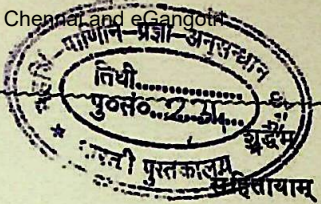 Chennai and eGangotri
पाणिनि-प्रज्ञा-अनुसन्धान
तिथी..............
पु०सं०...234......
शुद्धम्
पुस्तकालय
संहितायाम्